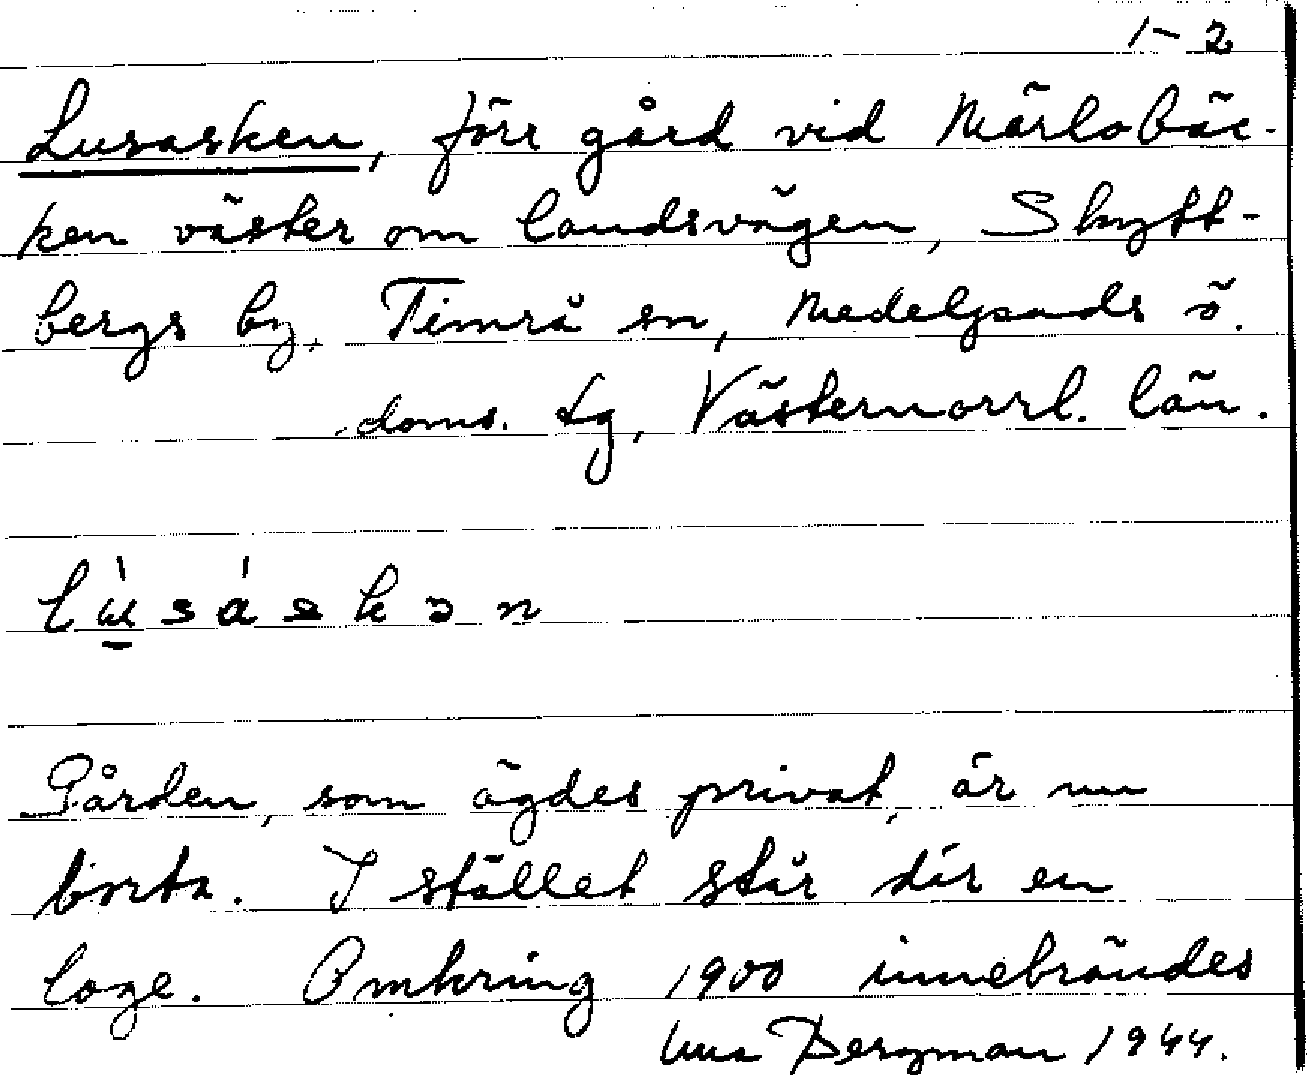 1-2
Lusasken, förr gård vid Märlobäc-
ken väster om landsvägen, Skytt-
bergs by, Timrå sn, Medelpads ö.
doms. tg, Västernorrl. län.
lùsáskən
Gården, som ägdes privat, är nu
borta. I stället står där en
loge. Omkring 1900 innebrändes
Bergman 1944.